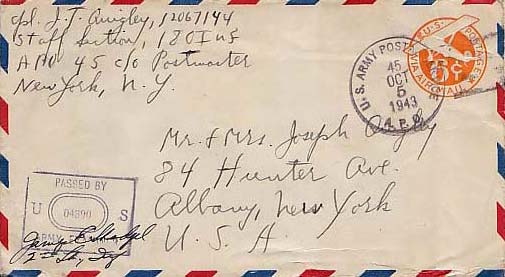 Cpl. J. T. Quigley, 12067144
Staff Section, 180 Inf
APO 45 c/o Postmaster
New York, N. Y.
U.S. ARMY POSTAL
45
OCT
5
1943
A.P.O.
U.S. POSTAGE
6¢
VIA AIR MAIL
Mr. + Mrs. Joseph Quigley
84 Hunter Ave.
Albany, New York
U. S. A.
PASSED BY
U 04390 S
ARMY
2nd Lt, Inf